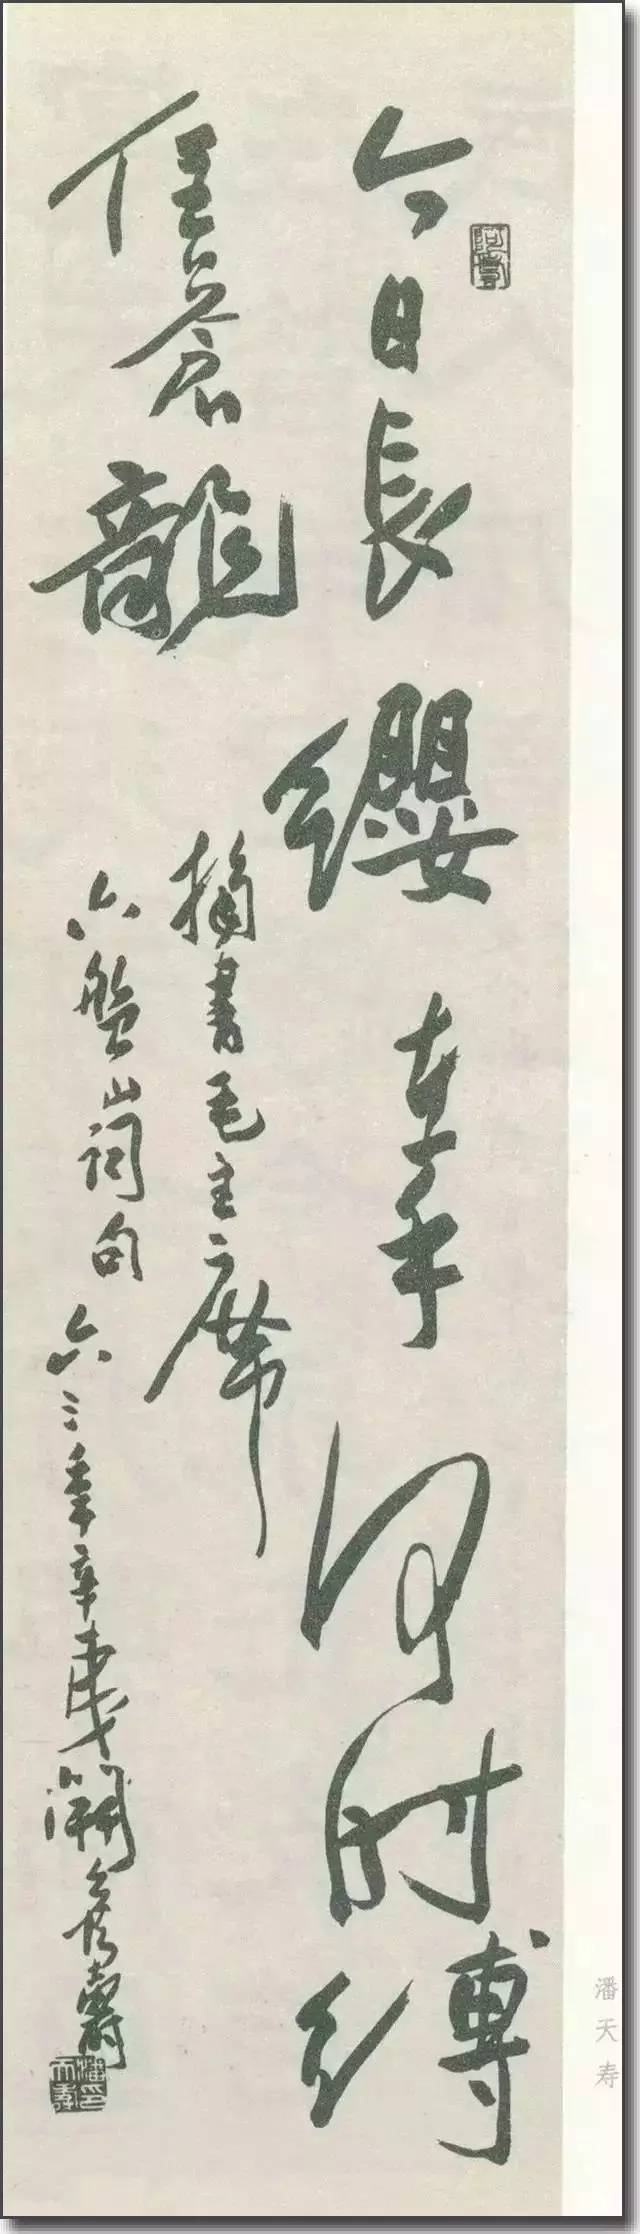 阿壽
今日長纓在手何時縛
住蒼龍
摘書毛主席
六盤山詞句 六三年辛夷開 壽
潘天壽印
潘天寿